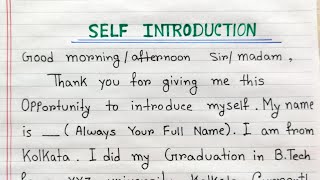 SELF INTRODUCTION
Good morning/afternoon Sir/madam,
Thank you for giving me this
Opportunity to introduce myself. My name
is __ (Always Your Full Name). I am from
Kolkata. I did my Graduation in B.Tech
from xyz university, Kolkata. Currently